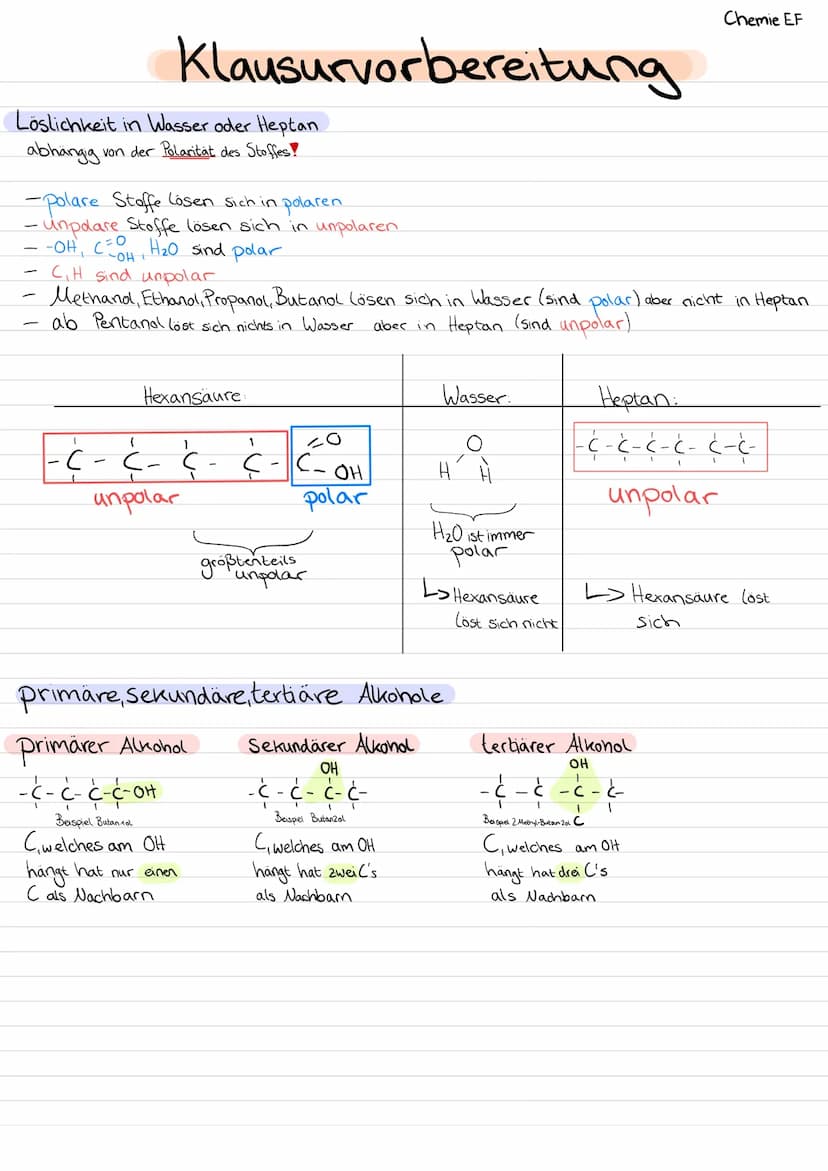 Chemie EF
Klausurvorbereitung
Löslichkeit in Wasser oder Heptan
abhängig von der Polarität des Stoffes!
- polare Stoffe lösen sich in polaren
- unpolare Stoffe lösen sich in unpolaren
- -OH, C=O -OH, H2O sind polar
- C,H sind unpolar
- Methanol, Ethanol, Propanol, Butanol lösen sich in Wasser (sind polar) aber nicht in Heptan
- ab Pentanol löst sich nichts in Wasser aber in Heptan (sind unpolar)
Hexansäure: Wasser: Heptan:
-C-C-C-C- C=O -OH
O
H H
-C-C-C-C-C-C-
unpolar polar unpolar
größtenteils unpolar
H2O ist immer
polar
↳ Hexansäure
löst sich nicht
↳ Hexansäure löst
sich
primäre, sekundäre, tertiäre Alkohole
primärer Alkohol
-C-C-C-C-OH
Beispiel Butan1ol
C, welches am OH
hängt hat nur einen
C als Nachbarn
sekundärer Alkohol
OH
-C-C-C-C-
Beispiel Butan2ol
C, welches am OH
hängt hat zwei C's
als Nachbarn
tertiärer Alkohol
OH
-C-C-C-C-
Beispiel 2 Methyl-Butan 2ol C
C, welches am OH
hängt hat drei C's
als Nachbarn